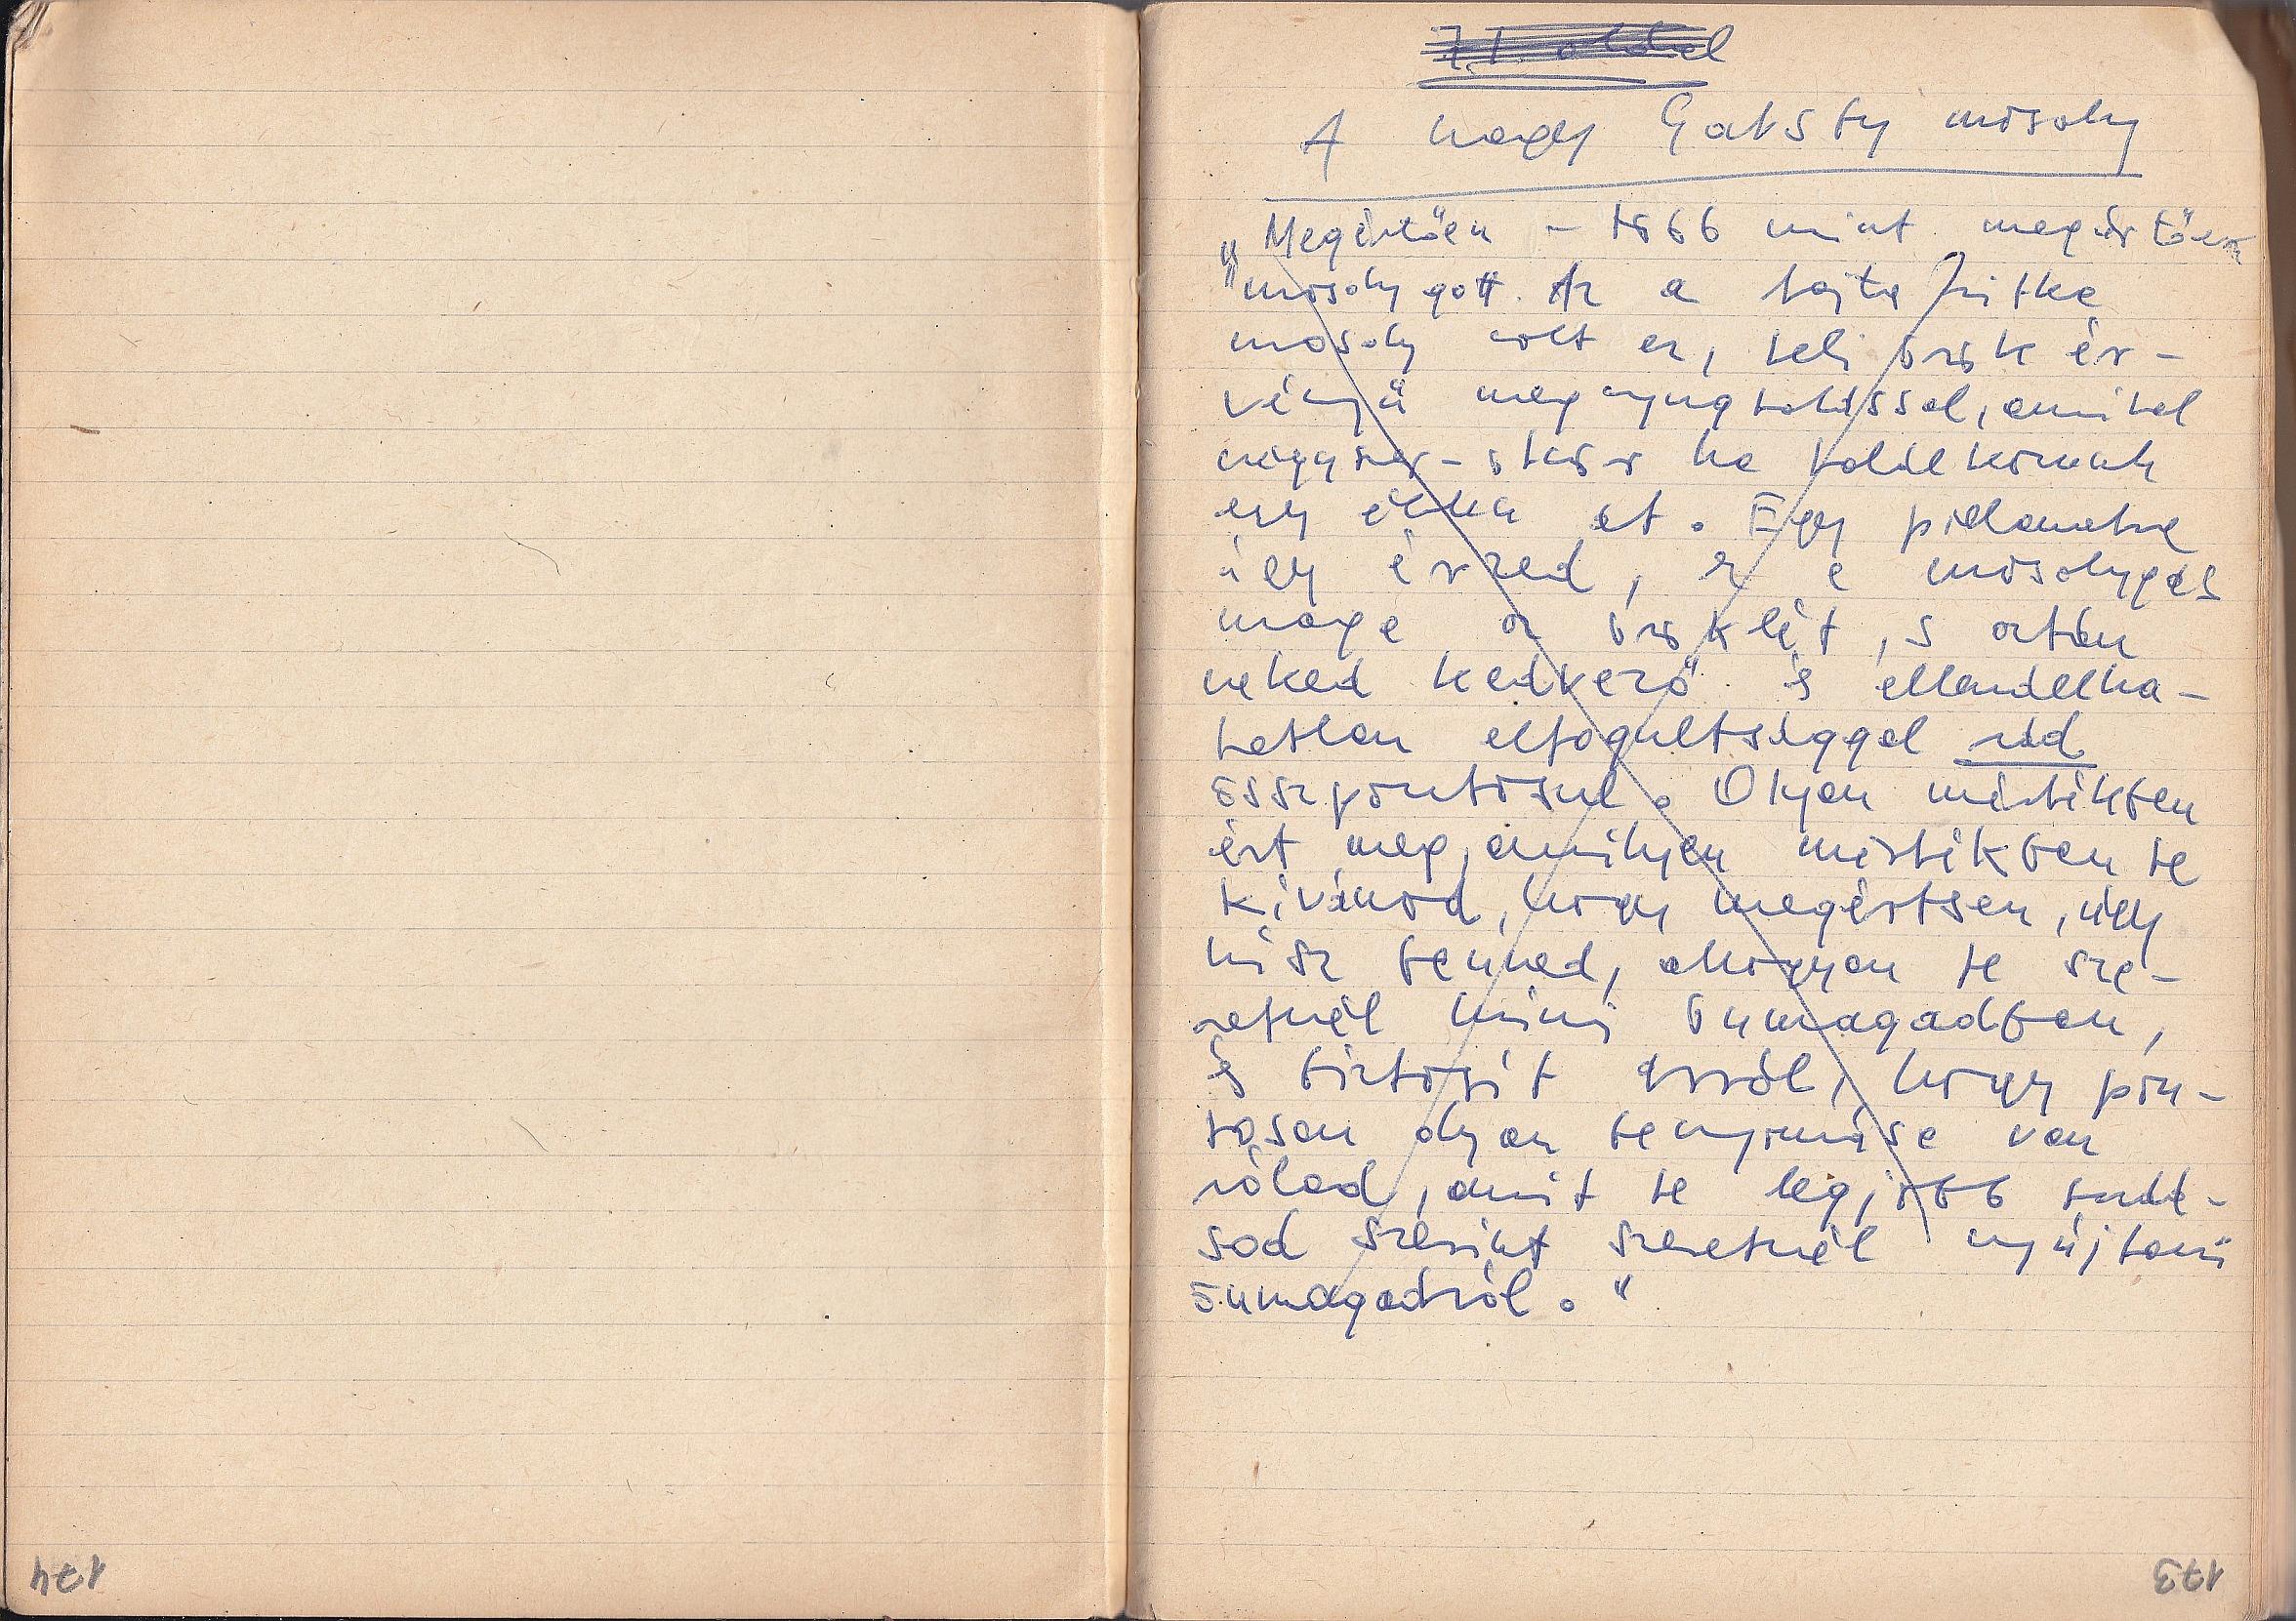 A nagy Gatsby mosoly
„Megértően – több mint megértően
mosolygott. Az a fajta ritka
mosoly volt ez, teli örök ér-
vényű megnyugtatással, amivel
négyszer-ötször ha találkozunk
egy életen át. Egy pillanatra
úgy érzed, ez a mosolygás
maga az öröklét, s aztán
neked kedvező és ellenállha-
tatlan elfogultsággal rád
összpontosul. Olyan mértékben
ért meg, amilyen mértékben te
kívánod, hogy megértsen, úgy
hisz benned, ahogyan te sze-
retnél hinni önmagadban,
és biztosít arról, hogy pon-
tosan olyan benyomása van
rólad, amit te legjobb tudá-
sod szerint szeretnél nyújtani
önmagadról."
174
173